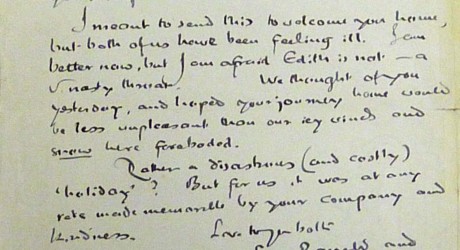 I meant to send this to welcome you home,
but both of us have been feeling ill. I am
better now, but I am afraid Edith is not — a
v. nasty throat. We thought of you
yesterday, and hoped your journey home would
be less unpleasant than our icy winds and
snow here foreboded.
Rather a disastrous (and costly)
'holiday'? But for us it was at any
rate made memorable by your company and
kindness. Love to you both
Ronald and